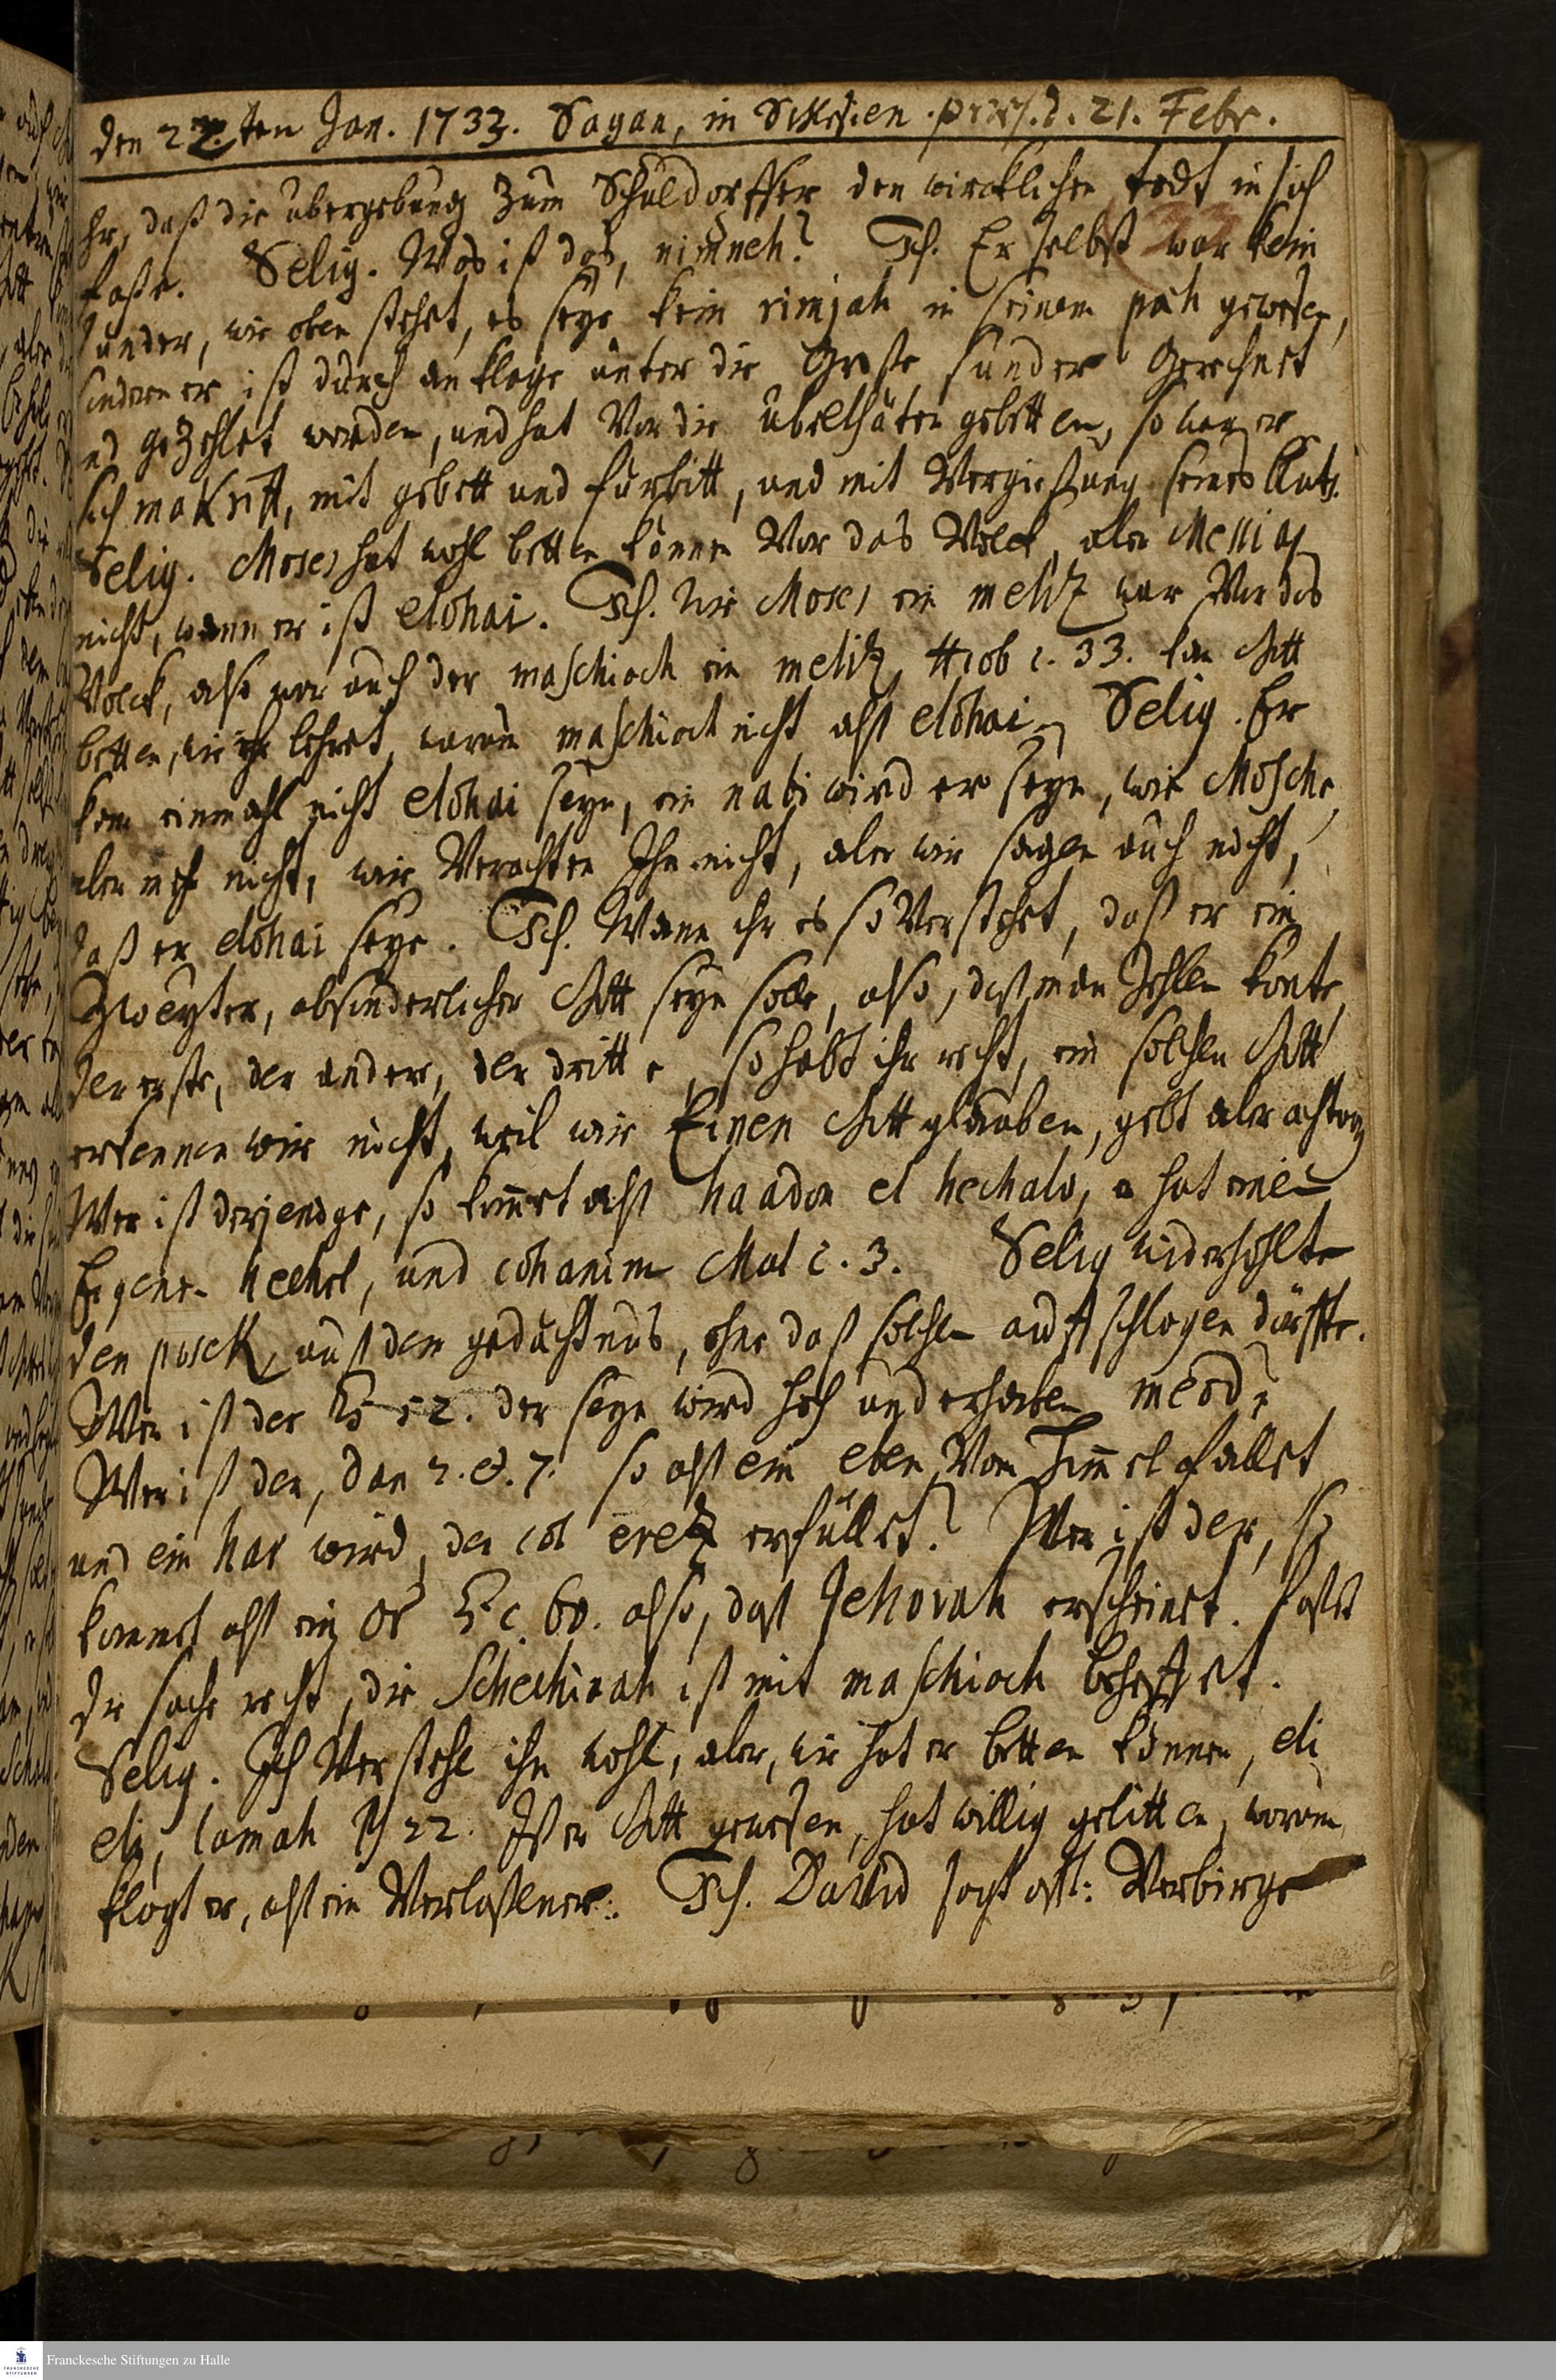 den 22ten Jan. 1733. Sagan, in Schlesien. præs. d. 21. Febr.
Ihr, daß die übergebung zum Schuldopffer den wircklichen todt in sich
faße. Selig. Was ist das, nimneh? Ich. Er selbst war kein
sünder, wie oben stehet, es seye kein rimjah in seinem pih gewesen,
sondern er ist durch anklage unter die Große sünder Gerechnet
und gezehlet worden, und hat Vor die übelthäter gebetten, so war er
sich makrift, mit gebett und fürbitt, und mit Vergießung seines bluts.
Selig. Moses hat wohl betten können Vor das Volck, aber Messias
nicht, wann er ist elohai. Ich. Wie Moses ein melitz war Vor das
Volck, also war auch der maschiach ein melitz, Hiob c. 33. kan Gott
betten, wie ihr lehret, warum maschiach nicht alß elohai. Selig. Er
kan einmahl nicht elohai seyn, ein nabi wird er seyn, wie Mosche,
aber mehr nicht, wir Verachten Ihn nicht, aber wir sagen auch nicht,
daß er elohai seye. Ich. Wann ihr es so Verstehet, daß er ein
Zweyter, absonderlicher Gott seyn solle, also, daß man Zehlen konte,
der erste, der andere, der dritte, so habt ihr recht, ein solchen Gott
erkennen wir nicht, weil wir Einen Gott glauben, gebt aber achtung
Wer ist derjenige, so kommet alß haadon el hechalo, er hat eine
Eigene hechel, und cohanim Mal c. 3. Selig widerhohlte
den pasuk, auß dem gedächtnus, ohne daß solchen aufschlagen dürffte.
Wer ist der Es 52. der seyn wird hoch und erhaben meod?
Wer ist der, Dan 2. et. 7. so alß ein eben Vom Himmel fallet
und ein har wird, der col eretz erfüllet? Wer ist der, so
kommet alß ein or Es c. 60. also, daß Jehovah erscheinet. faßet
die sache recht, die Schechinah ist mit maschiach behafftet.
Selig. Ich Verstehe ihn wohl, aber, wie hat er betten können, eli
eli, lamah Ps 22. Ist er Gott gewesen, hat willig gelitten, warum
klagt er, alß ein Verlaßener. Ich. David sagt offt: Verbirge
Franckesche Stiftungen zu Halle